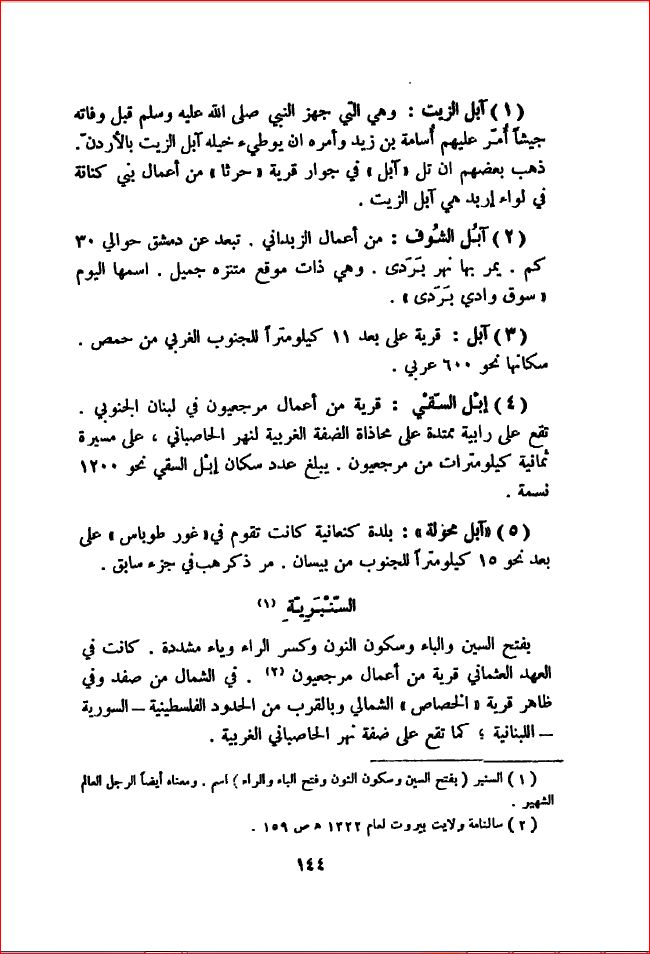 (١) آبل الزيت : وهي التي جهز النبي صلى الله عليه وسلم قبل وفاته
جيشاً أُمّر عليهم أُسامة بن زيد وأمره ان يوطيء خيله آبل الزيت بالأردن ّ.
ذهب بعضهم ان تل «آبل» في جوار قرية «حرثا» من أعمال بني كنانة
في لواء إربد هي آبل الزيت .
(٢) آبُل الشُوف : من أعمال الزبداني . تبعد عن دمشق حوالي ٣٠
كم . يمر بها نهر بَرَدى . وهي ذات موقع متنزه جميل . اسمها اليوم
« سوق وادي بَرَدى » .
(٣) آبل : قرية على بعد ١١ كيلومتراً للجنوب الغربي من حمص .
سكانها نحو ٦٠٠ عربي .
(٤) إبْل السّقيْ : قرية من أعمال مرجعيون في لبنان الجنوبي .
تقع على رابية ممتدة على محاذاة الضفة الغربية لنهر الحاصباني ، على مسيرة
ثمانية كيلومترات من مرجعيون . يبلغ عدد سكان إبْل السقي نحو ١٢٠٠
نسمة .
(٥) «آبل محولة» : بلدة كنعانية كانت تقوم في« غور طوباس» على
بعد نحو ١٥ كيلومتراً للجنوب من بيسان . مر ذكر هب في جزء سابق .
السّنْبَرِيّة (١)
بفتح السين والباء وسكون النون وكسر الراء وياء مشددة . كانت في
العهد العثماني قرية من أعمال مرجعيون (٢) . في الشمال من صفد وفي
ظاهر قرية « الخصاص » الشمالي وبالقرب من الحدود الفلسطينية – السورية
– اللبنانية ؛ كما تقع على ضفة نهر الحاصباني الغربية .
(١) السنبر ( بفتح السين وسكون النون وفتح الباء والراء ) اسم . ومعناه أيضاً الرجل العالم
الشهير .
(٢) سالنامة ولايت بيروت لعام ١٣٢٢ ه ص ١٥٩ .
١٤٤